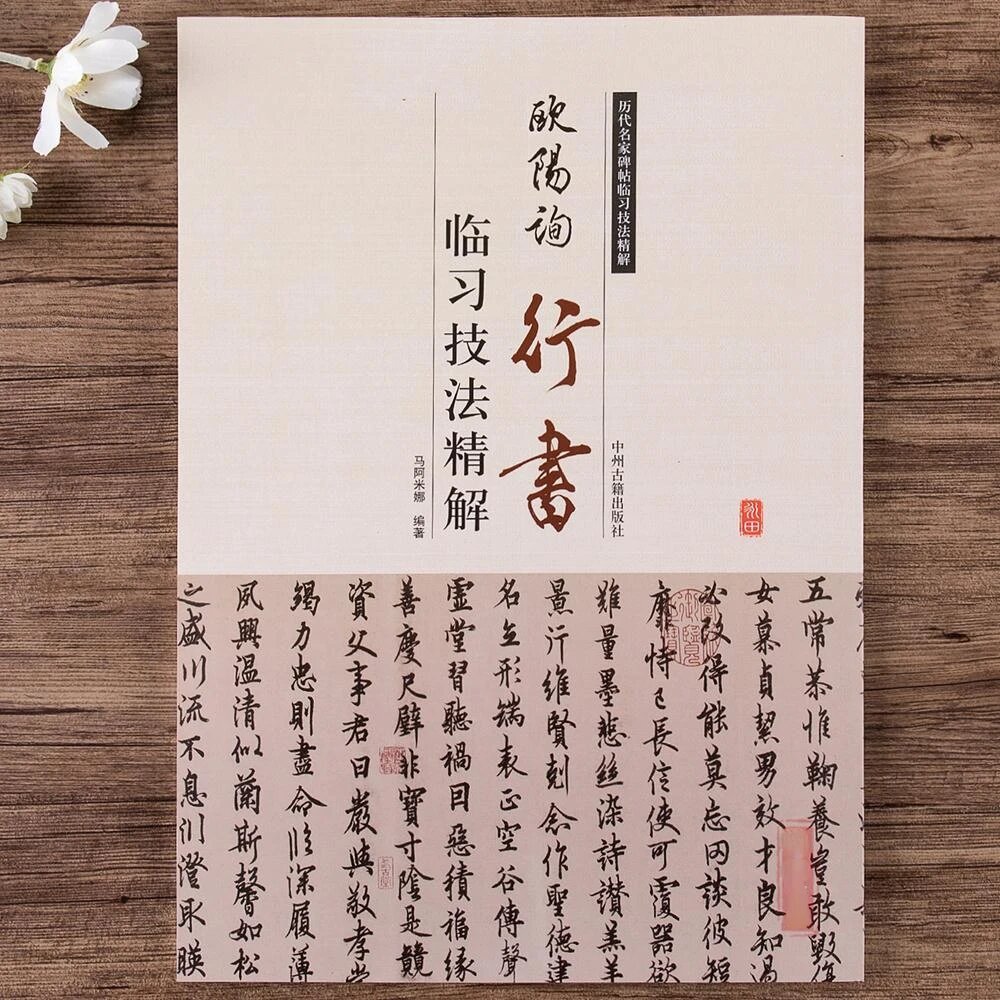 历代名家碑帖临习技法精解
中州古籍出版社
欧陽询
行書
临习技法精解
马阿米娜 编著
五常恭惟鞠養豈敢毀傷
女慕貞絜男效才良知過
必改得能莫忘罔談彼短
靡恃己長信使可覆器欲
難量墨悲絲染詩讚羔羊
景行維賢剋念作聖德建
名立形端表正空谷傳聲
虛堂習聽禍因惡積福緣
善慶尺璧非寶寸陰是競
資父事君曰嚴與敬孝當
竭力忠則盡命臨深履薄
夙興溫清似蘭斯馨如松
之盛川流不息淵澄取暎